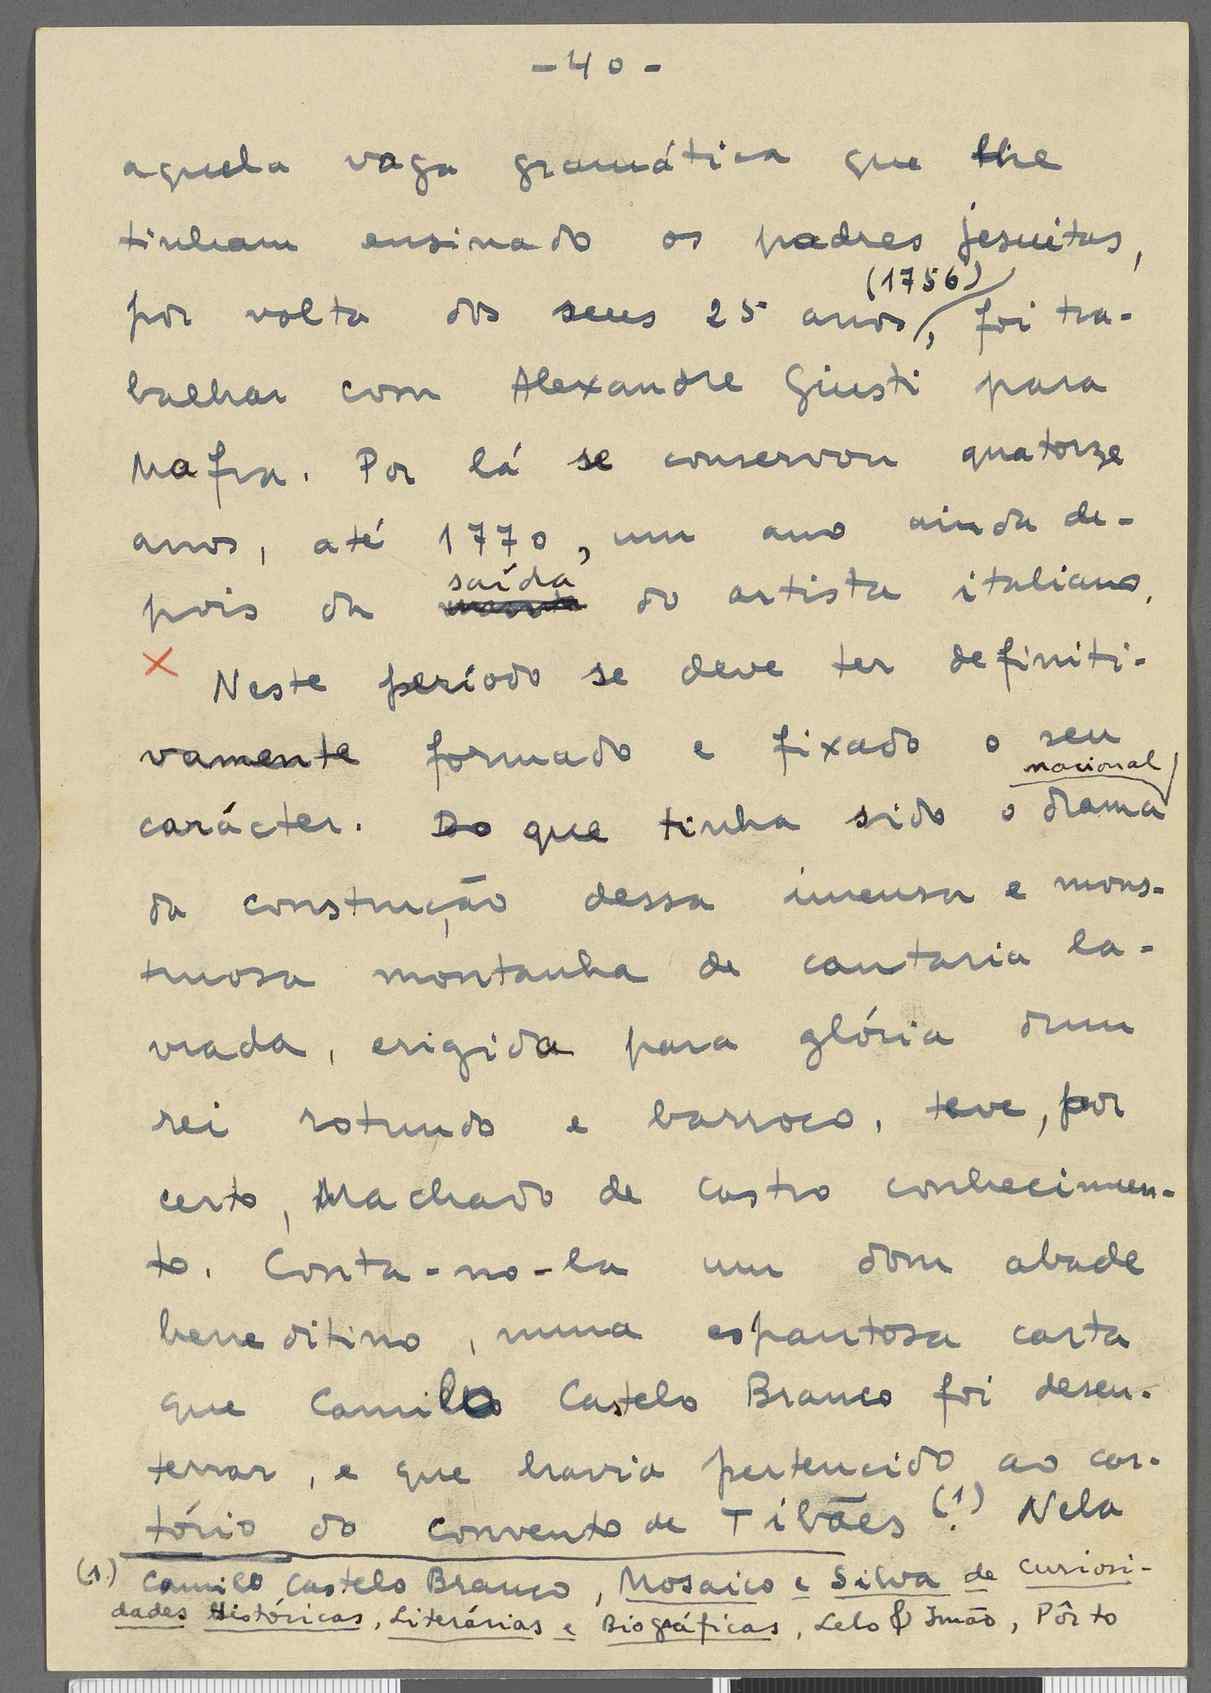 - 40 -
aquela vaga gramática que lhe
tinham ensinado os padres jesuitas,
(1756)
por volta dos seus 25 anos, foi tra-
balhar com Alexandre Giusti para
Mafra. Por lá se conservou quatorze
anos, até 1770, um ano ainda de-
saída
pois da do artista italiano.
x Neste período se deve ter definiti-
vamente formado e fixado o seu
nacional
carácter. Do que tinha sido o drama
da construção dessa imensa e mons-
truosa montanha de cantaria la-
vrada, erigida para glória dum
rei rotundo e barroco, teve, por
certo, Machado de Castro conhecimen-
to. Conta-no-la um dom abade
beneditino, numa espantosa carta
que Camilo Castelo Branco foi desen-
terrar, e que havia pertencido ao car-
tório do convento de Tibães (1). Nela
(1) Camilo Castelo Branco, Mosaico e Silva de Curiosi-
dades Históricas, Literárias e Biográficas, Lelo & Irmão, Pôrto